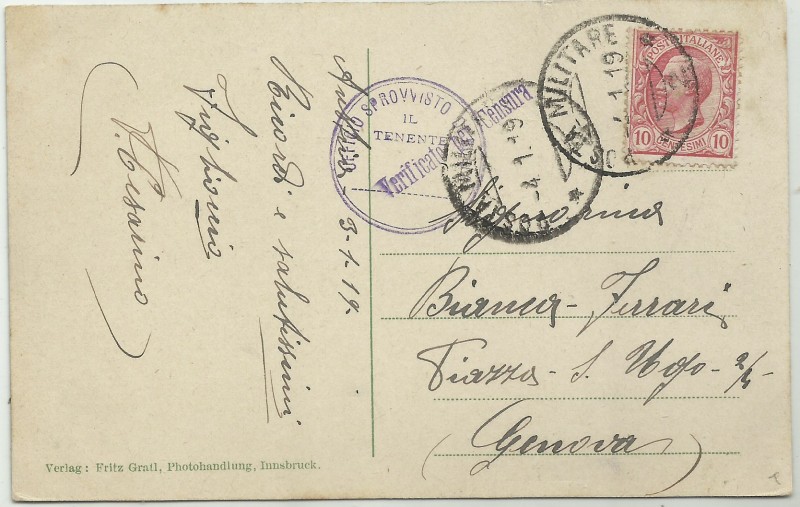 Austria - 3-1-19.
Ricordi e salutissimi
Cesarino
UFFICIO SPROVVISTO
IL
TENENTE
Verificato per Censura
POSTA MILITARE
4.1.19
POSTA MILITARE
4.1.19
POSTE ITALIANE
10 CENTESIMI 10
Signorina
Bianca Ferrari
Piazza - S. Ugo - 2/4 -
(Genova)
Verlag: Fritz Gratl, Photohandlung, Innsbruck.